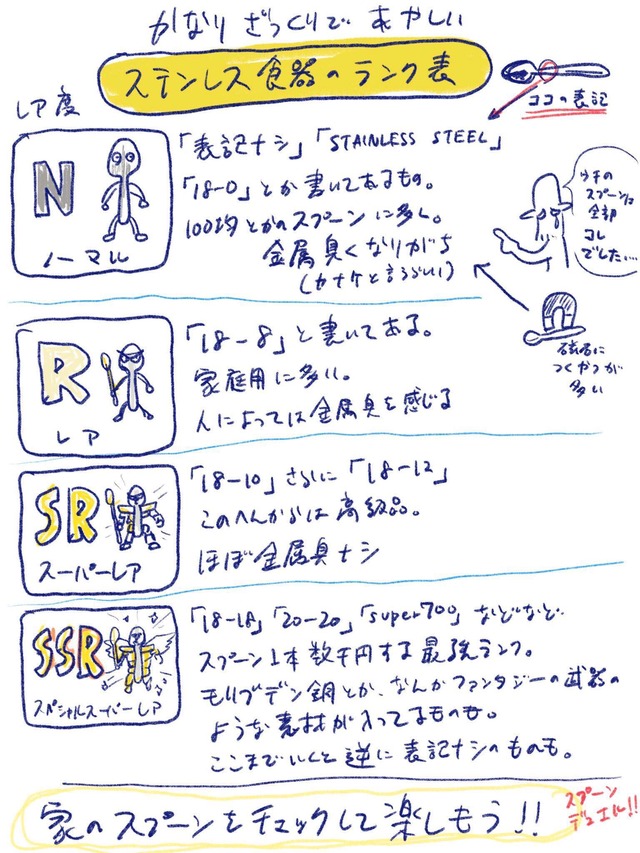 かなりざっくりであやしい
ステンレス食器のランク表
ココの表記
レア度
N
ノーマル
「表記ナシ」「STAINLESS STEEL」
「18-0」とか書いてあるもの。
100均とかのスプーンに多い。
金属臭くなりがち
(カナケと言うらしい)
ウチの
スプーンは
全部
コレ
でした…
磁石に
つくやつが
多い
R
レア
「18-8」と書いてある。
家庭用に多い。
人によっては金属臭を感じる
SR
スーパーレア
「18-10」さらに「18-12」
このへんからは高級品。
ほぼ金属臭ナシ
SSR
スペシャルスーパーレア
「18-18」「20-20」「super700」などなど
スプーン1本数千円する最強ランク。
モリブデン鋼とか、なんかファンタジーの武器の
ような素材が入ってるものも。
ここまでいくと逆に表記ナシのものも。
家のスプーンをチェックして楽しもう!!
スプーン
デュエル!!